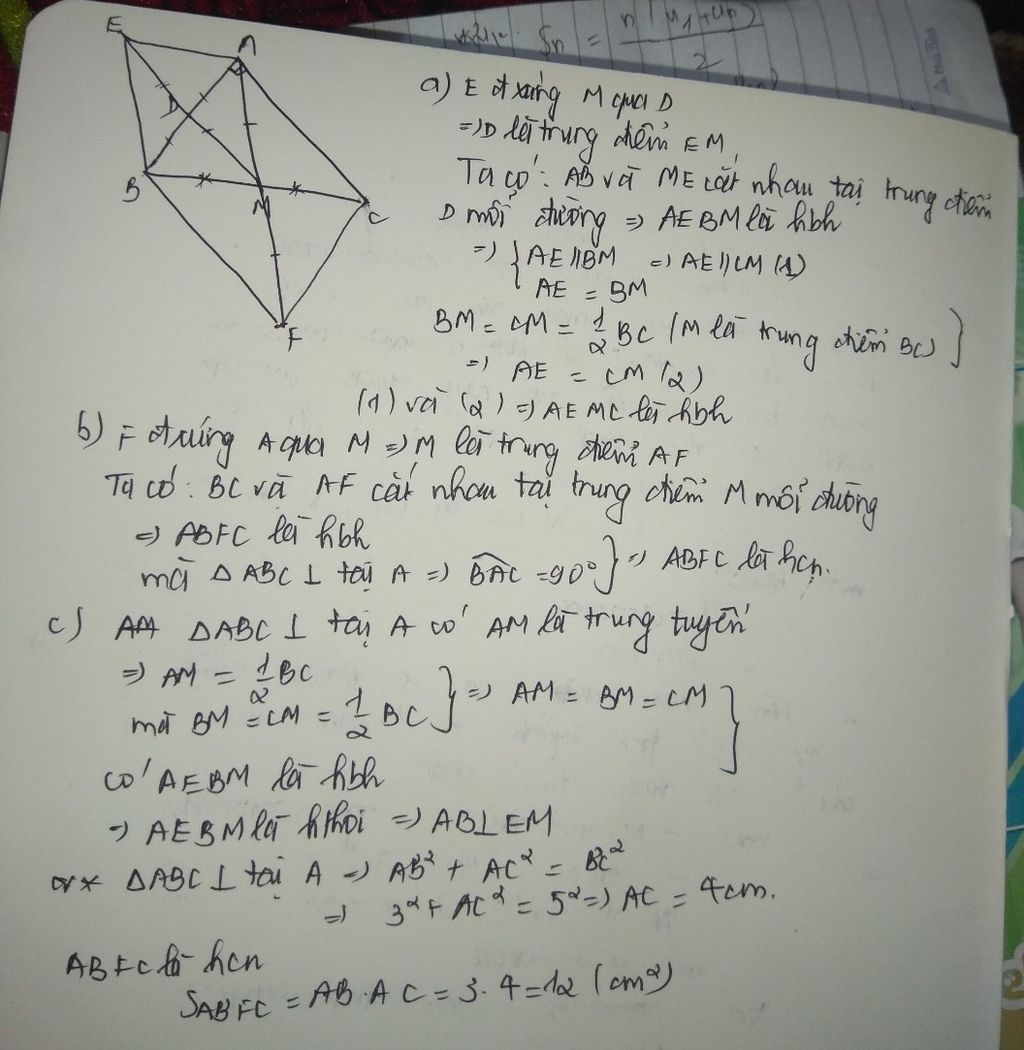 Sn = n(u1+un) / 2
E
A
D
B
M
C
F
a) E đ xứng M qua D
=> D là trung điểm EM
Ta có: AB và ME cắt nhau tại trung điểm
D mỗi đường => AEBM là hbh
=> { AE // BM => AE // CM (1)
AE = BM
BM = CM = 1/2 BC (M là trung điểm BC) }
=> AE = CM (2)
(1) và (2) => AEMC là hbh
b) F đ xứng A qua M => M là trung điểm AF
Ta có: BC và AF cắt nhau tại trung điểm M mỗi đường
=> ABFC là hbh
mà ΔABC ⊥ tại A => BAC = 90° } => ABFC là hcn.
c) ΔABC ⊥ tại A có AM là trung tuyến
=> AM = 1/2 BC
mà BM = CM = 1/2 BC } => AM = BM = CM }
có AEBM là hbh
=> AEBM là hthoi => AB ⊥ EM
* ΔABC ⊥ tại A => AB² + AC² = BC²
=> 3² + AC² = 5² => AC = 4cm.
ABFC là hcn
SABFC = AB . AC = 3 . 4 = 12 (cm²)